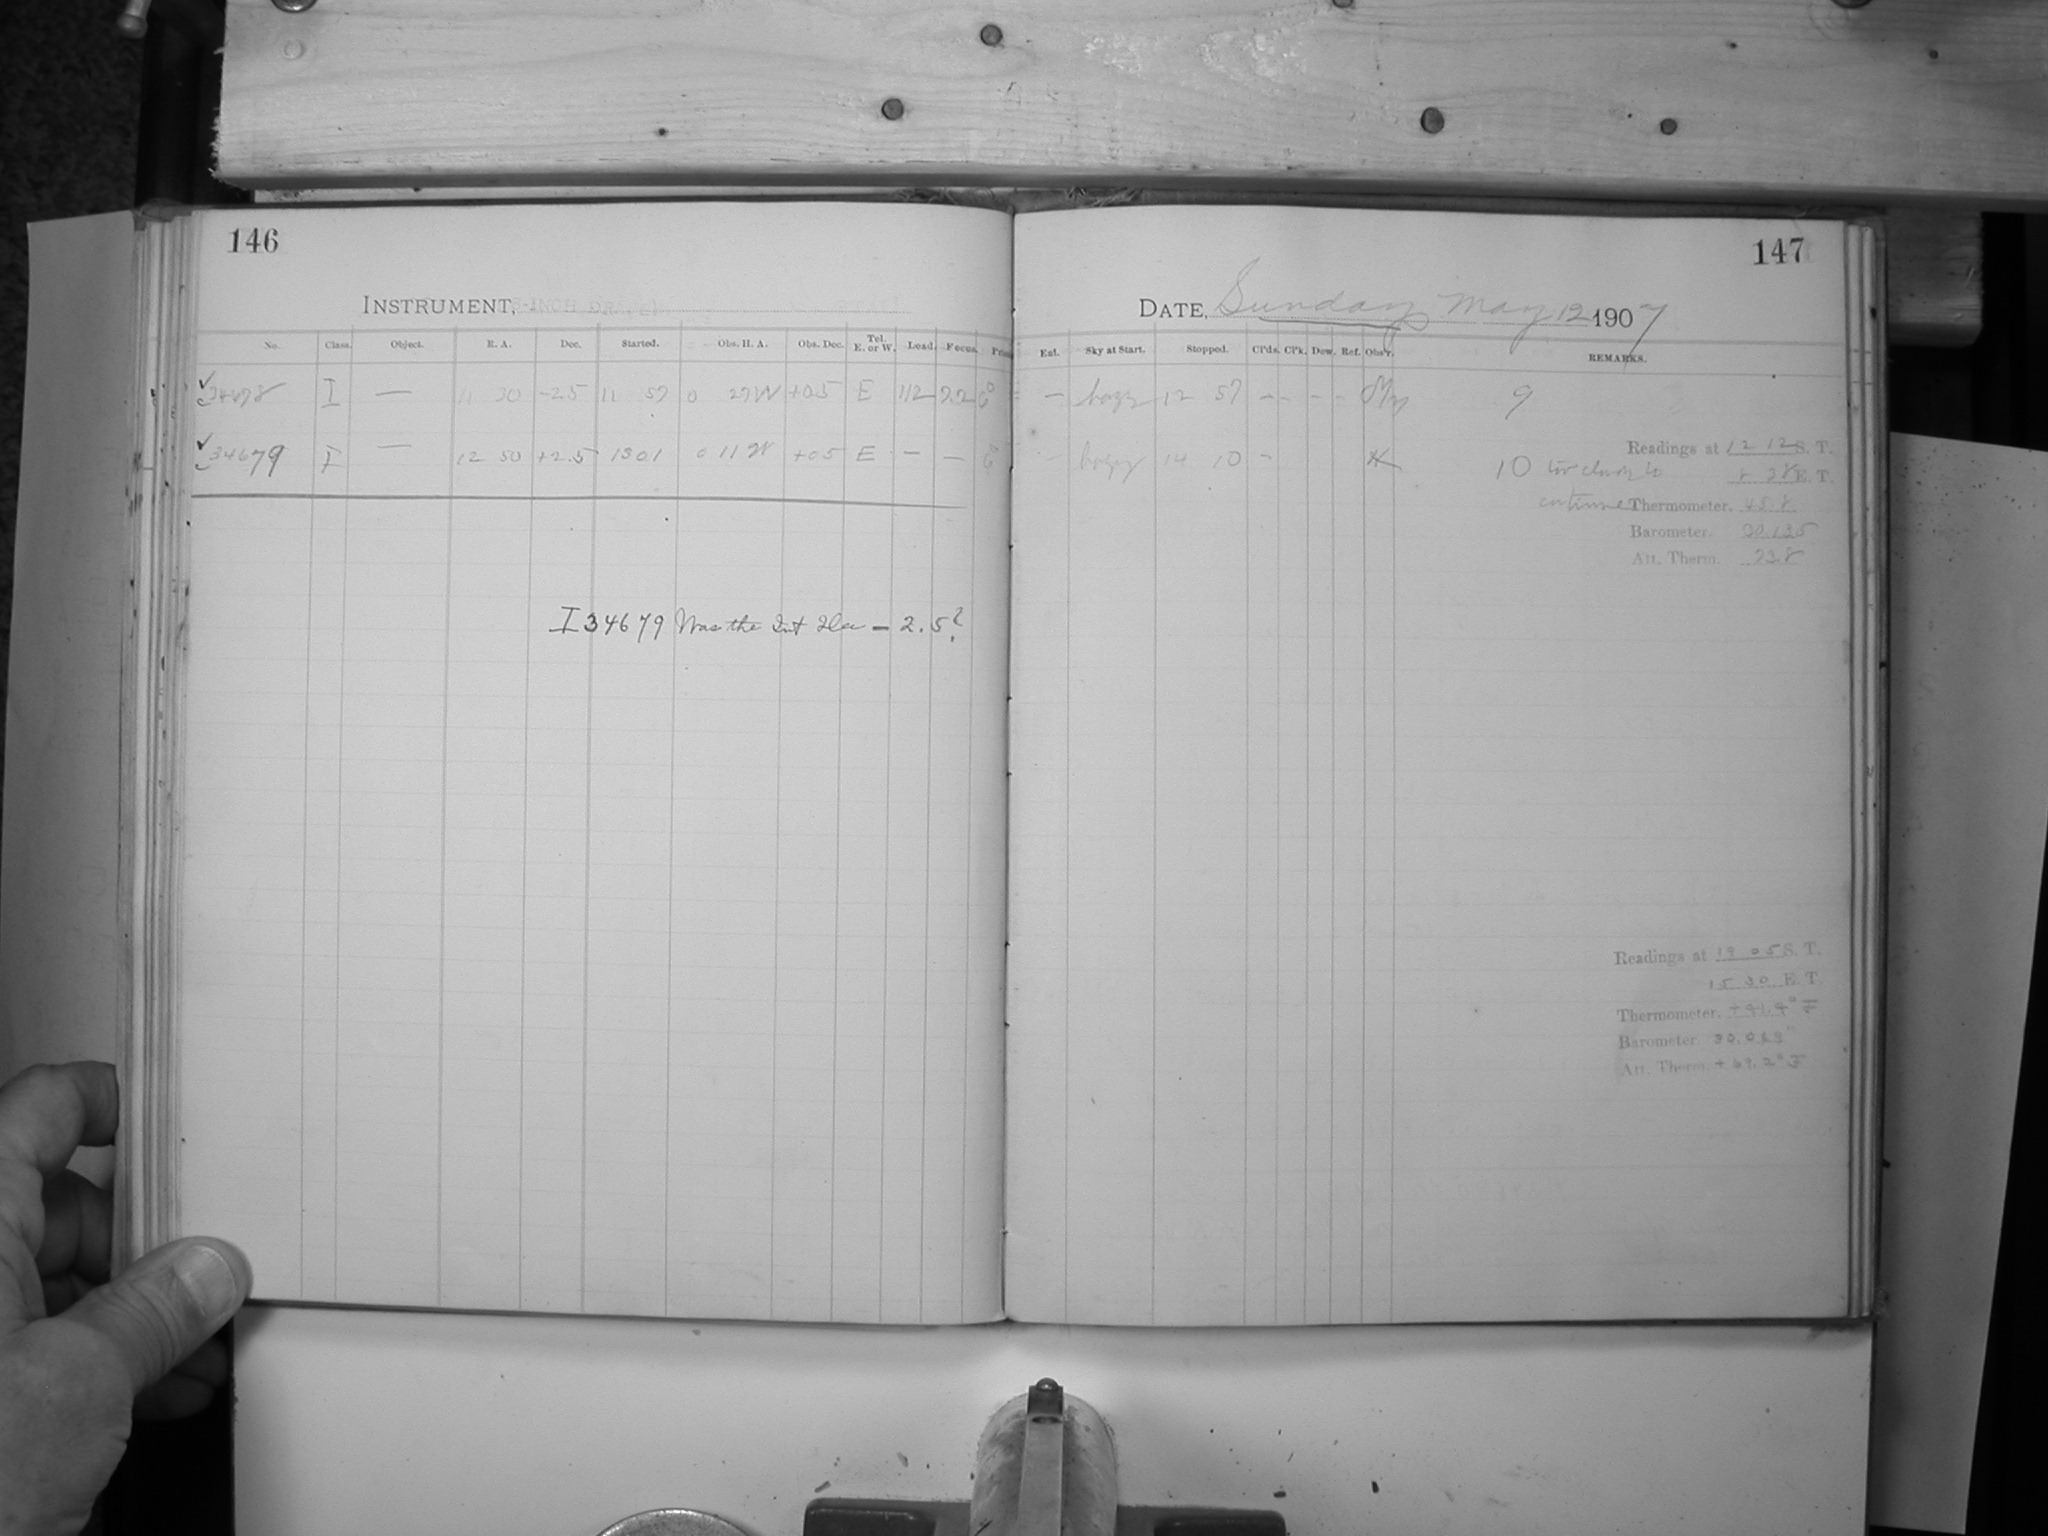 146
INSTRUMENT, 8-INCH DRAPER
No. Class. Object. R. A. Dec. Started. Obs. H. A. Obs. Dec. Tel. E. or W. Load. Focus.
34678 I — 11 30 -2.5 11 57 0 27W +05 E 112
34679 I — 12 50 +2.5 1301 0 11 W +05 E — —
I 34679 Was the Int Dec — 2.5?
147
DATE, Sunday May 12 1907
Ent. Sky at Start. Stopped. Cl'ds. Cl'k. Dew. Ref. Obs'r. REMARKS.
— hazy 12 57 — — — — 9
hazy 14 10 — 10 too cloudy to
continue
Readings at 12 12 S. T.
8 28 E. T.
Thermometer.
Barometer. 30.135
Att. Therm. 73.8
Readings at 19 05 S. T.
15 30 E. T.
Thermometer. +41.9° F
Barometer
Att. Therm. + 69.2° F